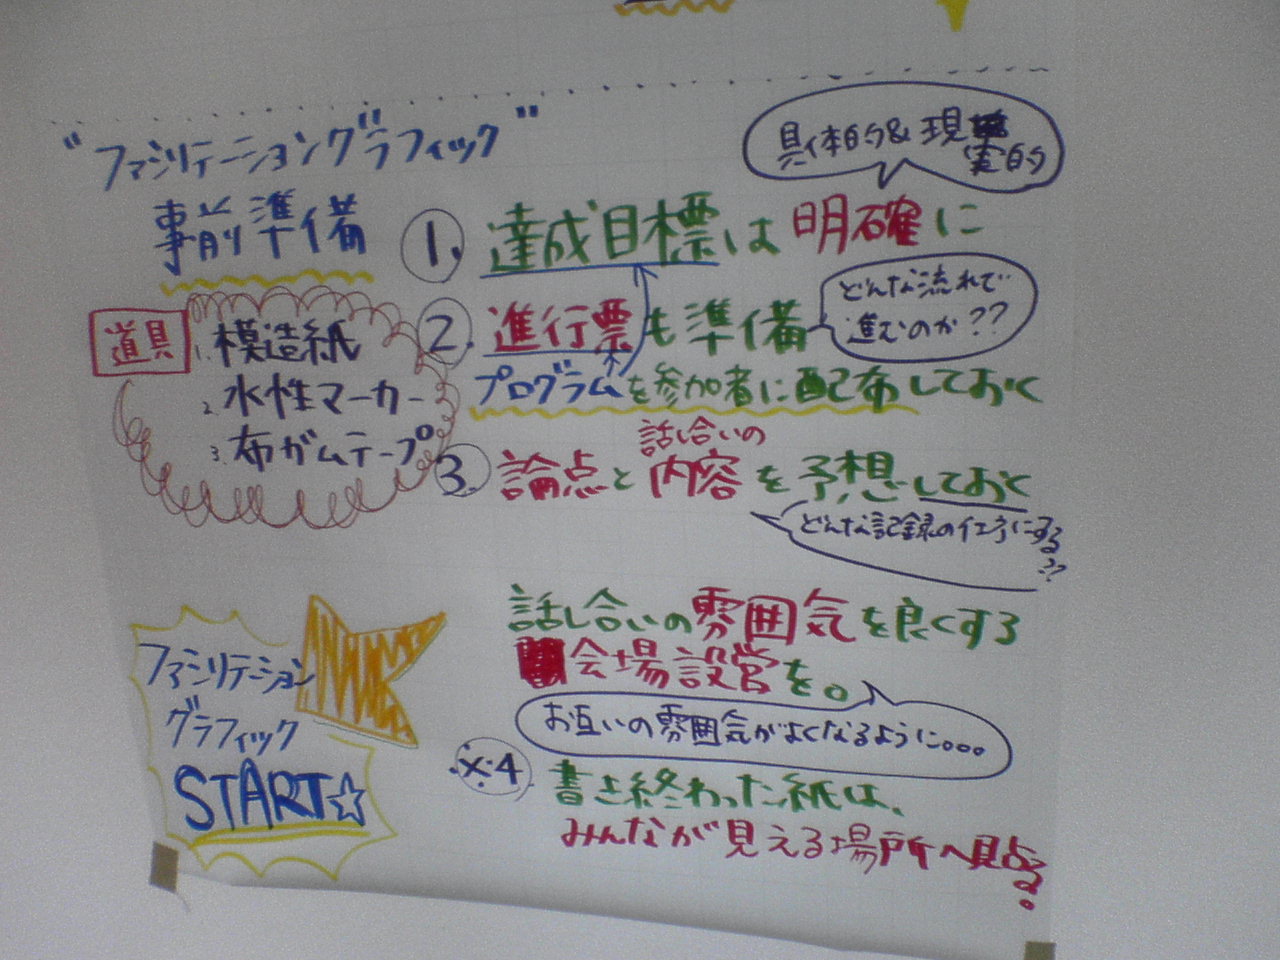 "ファシリテーショングラフィック"
事前準備
具体的&現実的
1. 達成目標は明確に
2. 進行票も準備
どんな流れで
進むのか??
プログラムを参加者に配布しておく
道具
1. 模造紙
2. 水性マーカー
3. 布ガムテープ
話し合いの
3. 論点と内容を予想しておく
どんな記録の仕方にする??
話し合いの雰囲気を良くする
会場設営を。
お互いの雰囲気がよくなるように。。。
ファシリテーション
グラフィック
START☆
※4 書き終わった紙は、
みんなが見える場所へ貼る。